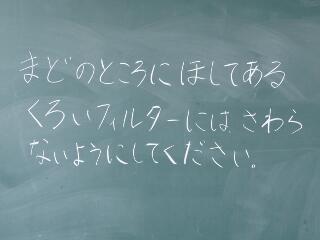 まどのところにほしてある
くろいフィルターには、さわら
ないようにしてください。